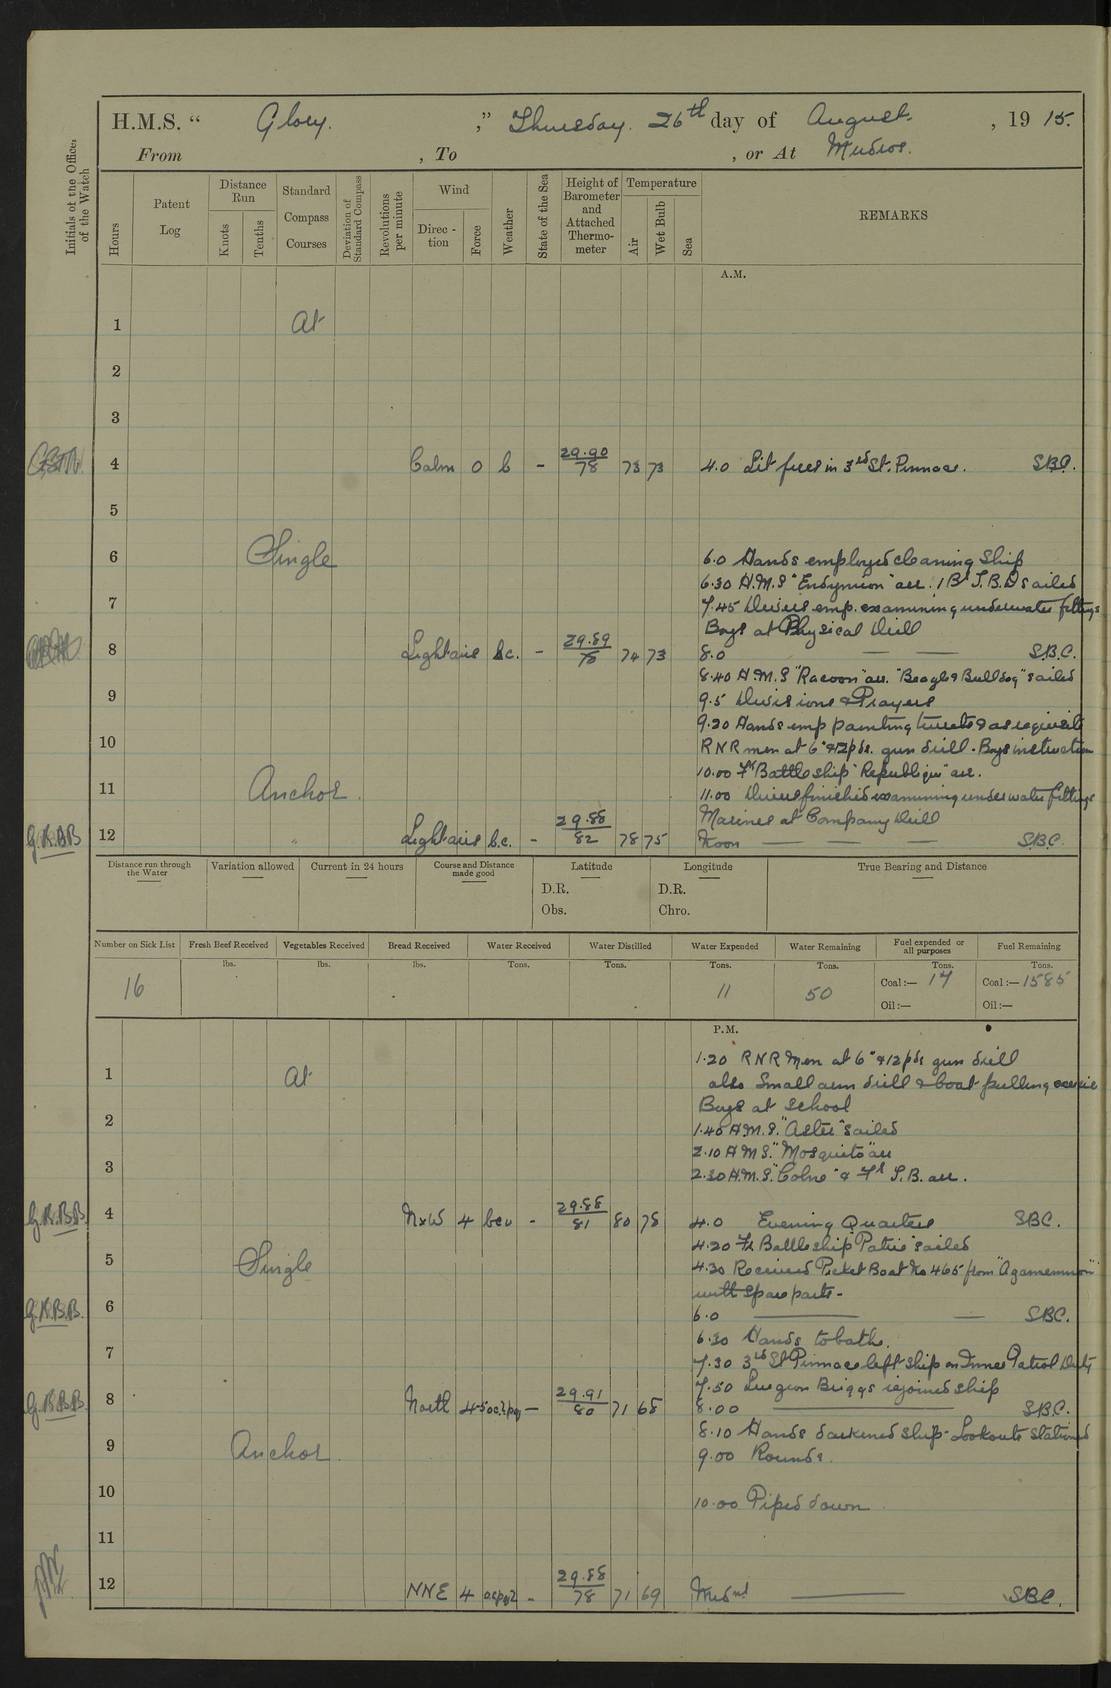 H.M.S. “ Glory. ,” Thursday. 26th day of August. , 19 15.
From , To , or At Mudros.
Initials of the Officer of the Watch
Hours
Patent Log
Distance Run
Knots
Tenths
Standard Compass Courses
Deviation of Standard Compass
Revolutions per minute
Wind
Direc-tion
Force
Weather
State of the Sea
Height of Barometer and Attached Thermo-meter
Temperature
Air
Wet Bulb
Sea
REMARKS
A.M.
1 At
2
3
4 Calm 0 b - 29.90 78 73 73 4.0 Lit fires in 3rd St. Pinnace. SBC.
5
6 Single 6.0 Hands employed cleaning Ship
6.30 H.M.S "Endymion" arr. 1 Br T.B.D sailed
7 7.45 Divers emp. examining underwater fittings
Boys at Physical Drill
8 Light airs b.c. - 29.89 78 74 73 8.0 — — S.B.C.
8.40 H.M.S "Racoon" arr. "Beagle & Bulldog" sailed
9 9.5 Divisions & Prayers
9.20 Hands emp painting turrets & as requisite
10 RNR men at 6" & 12pdr. gun drill. Boys instruction
10.00 Fr Battleship "Republique" arr.
11 Anchor. 11.00 Divers finished examining underwater fittings
Marines at Company Drill
12 G.K.B.B Light airs b.c. - 29.88 82 78 75 Noon — — — S.B.C.
Distance run through the Water
Variation allowed
Current in 24 hours
Course and Distance made good
Latitude
D.R.
Obs.
Longitude
D.R.
Chro.
True Bearing and Distance
Number on Sick List
Fresh Beef Received
Vegetables Received
Bread Received
Water Received
Water Distilled
Water Expended
Water Remaining
Fuel expended or all purposes
Fuel Remaining
lbs. lbs. lbs. Tons. Tons. Tons. Tons. Tons. Tons.
16 11 50 Coal:— 14 Coal:— 1585
Oil:— Oil:—
P.M.
1.20 RNR Men at 6" & 12pdr gun drill
1 At also Small arm drill & boat pulling exercise
Boys at School
2 1.45 H.M.S. "Aster" sailed
2.10 H M S. "Mosquito" arr
3 2.30 H.M.S. "Colne" & Fr T.B. arr.
G.K.B.B. 4 NxW 4 bcv - 29.88 81 80 78 4.0 Evening Quarters SBC.
4.20 Fr Battleship "Patrie" sailed
5 Single 4.30 Received Picket Boat No 465 from "Agamemnon"
with spare parts -
G.K.B.B. 6 6.0 — — SBC.
6.30 Hands to bathe.
7 7.30 3rd St Pinnace left ship on Inner Patrol Duty
7.50 Surgeon Briggs rejoined ship
G.K.B.B. 8 North 4-5 — 29.91 80 71 68 8.00 — S.B.C.
8.10 Hands darkened ship - Lookouts stationed
9 Anchor. 9.00 Rounds.
10 10.00 Piped down
11
12 NNE 4 - 29.88 78 71 69 Midnt — SBC.